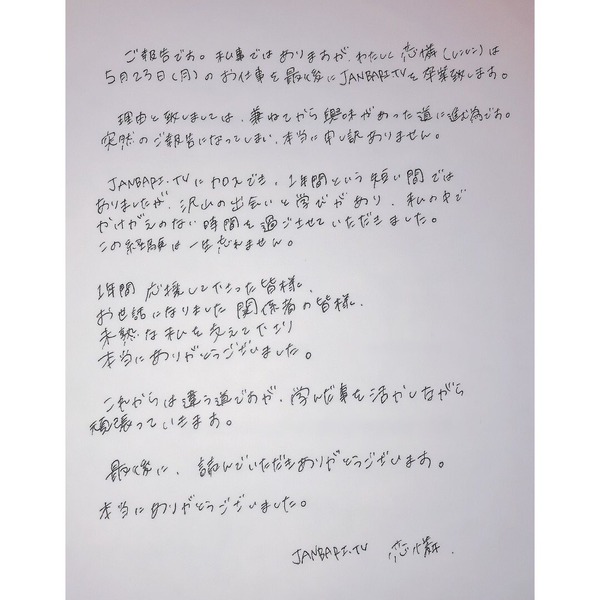 ご報告です。私事ではありますが、わたくし恋憐(レンレン)は
5月23日(月)のお仕事を最後にJANBARI.TVを卒業致します。
理由と致しましては、兼ねてから興味があった道に進む為です。
突然のご報告になってしまい、本当に申し訳ありません。
JANBARI.TVに加入でき、1年間という短い間では
ありましたが、沢山の出会いと学びがあり、私の中で
かけがえのない時間を過ごさせていただきました。
この経験は一生忘れません。
1年間 応援して下さった皆様、
お世話になりました関係者の皆様、
未熟な私を支えて下さり
本当にありがとうございました。
これからは違う道ですが、学んだ事を活かしながら
頑張っていきます。
最後に、読んでいただきありがとうございます。
本当にありがとうございました。
JANBARI.TV 恋憐.